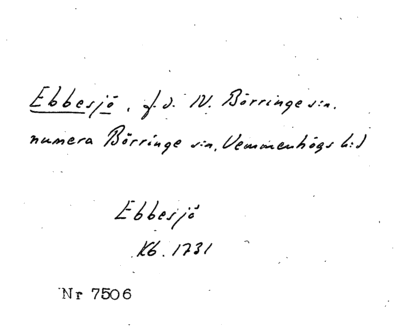 Ebbesjö, f.d. N. Börringe s:n.
numera Börringe s:n, Vemmenhögs h:d
Ebbesjö
Kb. 1731
Nr 7506